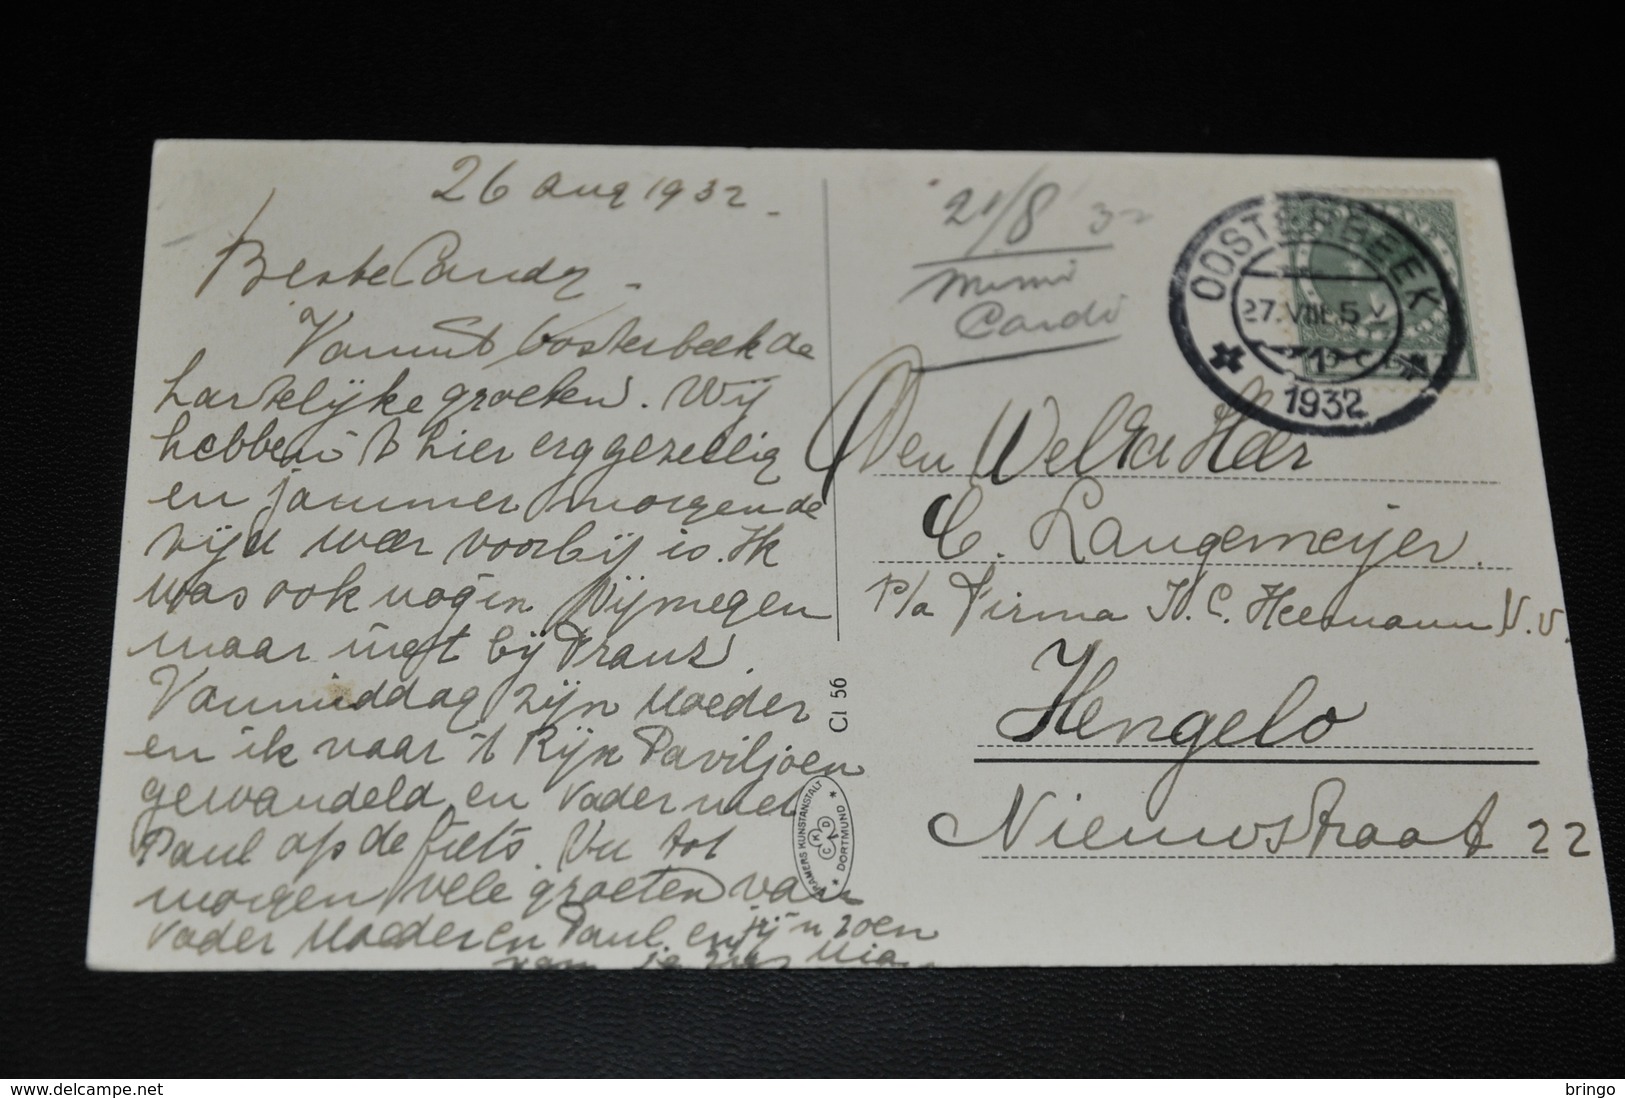 26 aug 1932.
Beste Candy.
Vanuit Oosterbeek de
hartelijke groeten. Wij
hebben 't hier erg gezellig
en jammer morgen de
tijd weer voorbij is. Ik
was ook nog in Nijmegen
maar niet bij Frans.
Vanmiddag zijn Moeder
en ik naar 't Rijn Paviljoen
gewandeld en Vader met
Paul op de fiets. Nu tot
morgen vele groeten van
Vader Moeder en Paul en 'n zoen
van je zus Mia
CI 56
CRAMERS KUNSTANSTALT
DORTMUND
CKDA
21/8 32
Mimi
Candi
OOSTERBEEK
27.VIII.5 V
1
1932
Den Weled. Heer
C. Langemeijer.
p/a Firma H. C. Heemann N.V.
Hengelo
Nieuwstraat 22
bringo